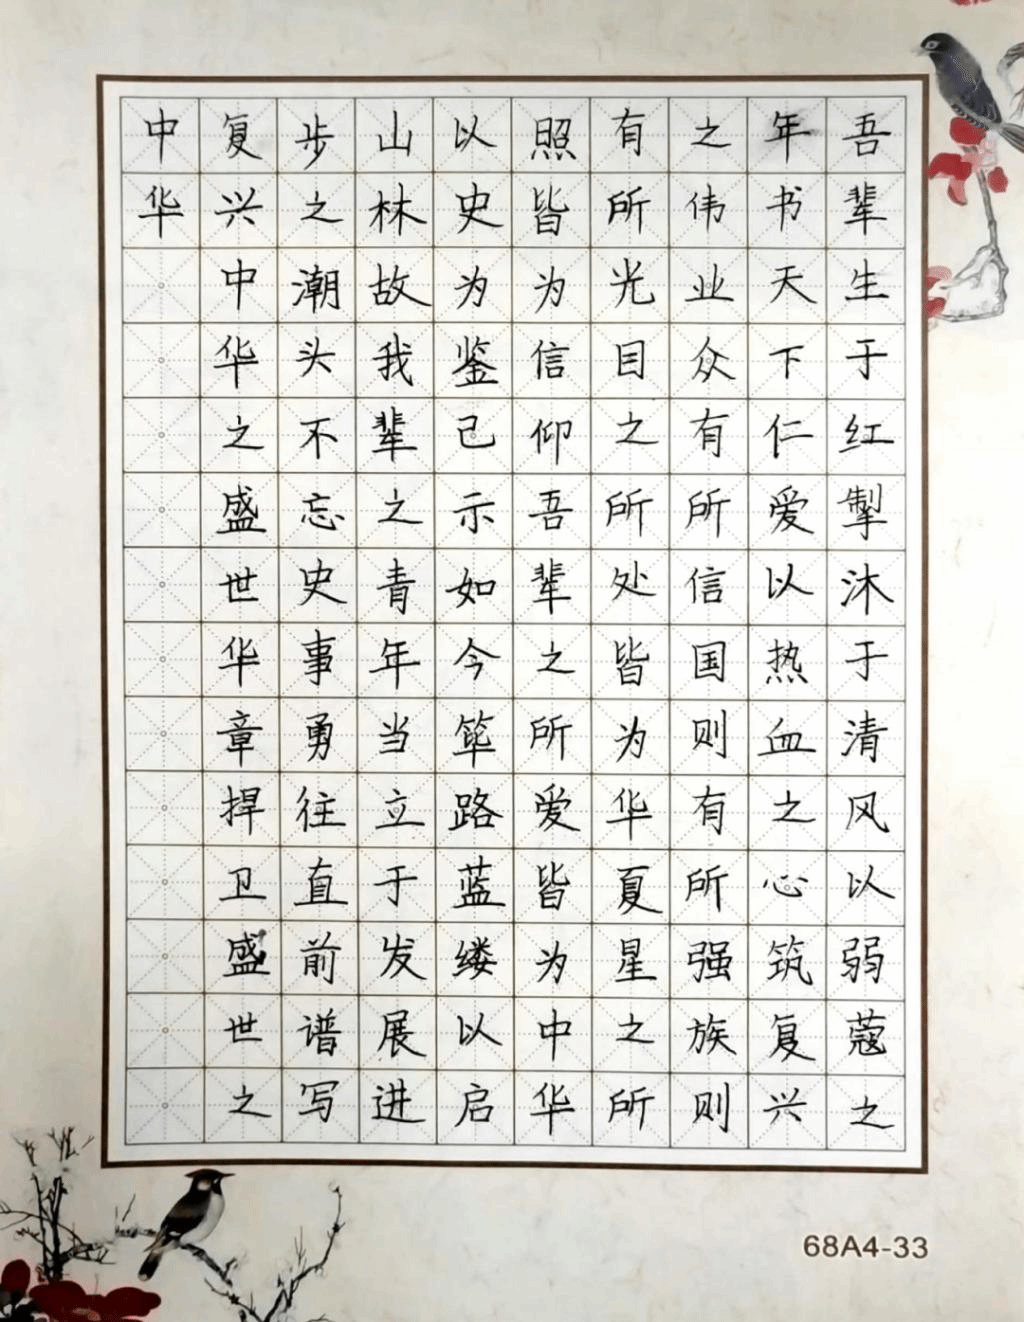 吾辈生于红掣沐于清风以弱蔻之
年书天下仁爱以热血之心筑复兴
之伟业众有所信国则有所强族则
有所光目之所处皆为华夏星之所
照皆为信仰吾辈之所爱皆为中华
以史为鉴己示如今筚路蓝缕以启
山林故我辈之青年当立于发展进
步之潮头不忘史事勇往直前谱写
复兴中华之盛世华章捍卫盛世之
中华
68A4-33